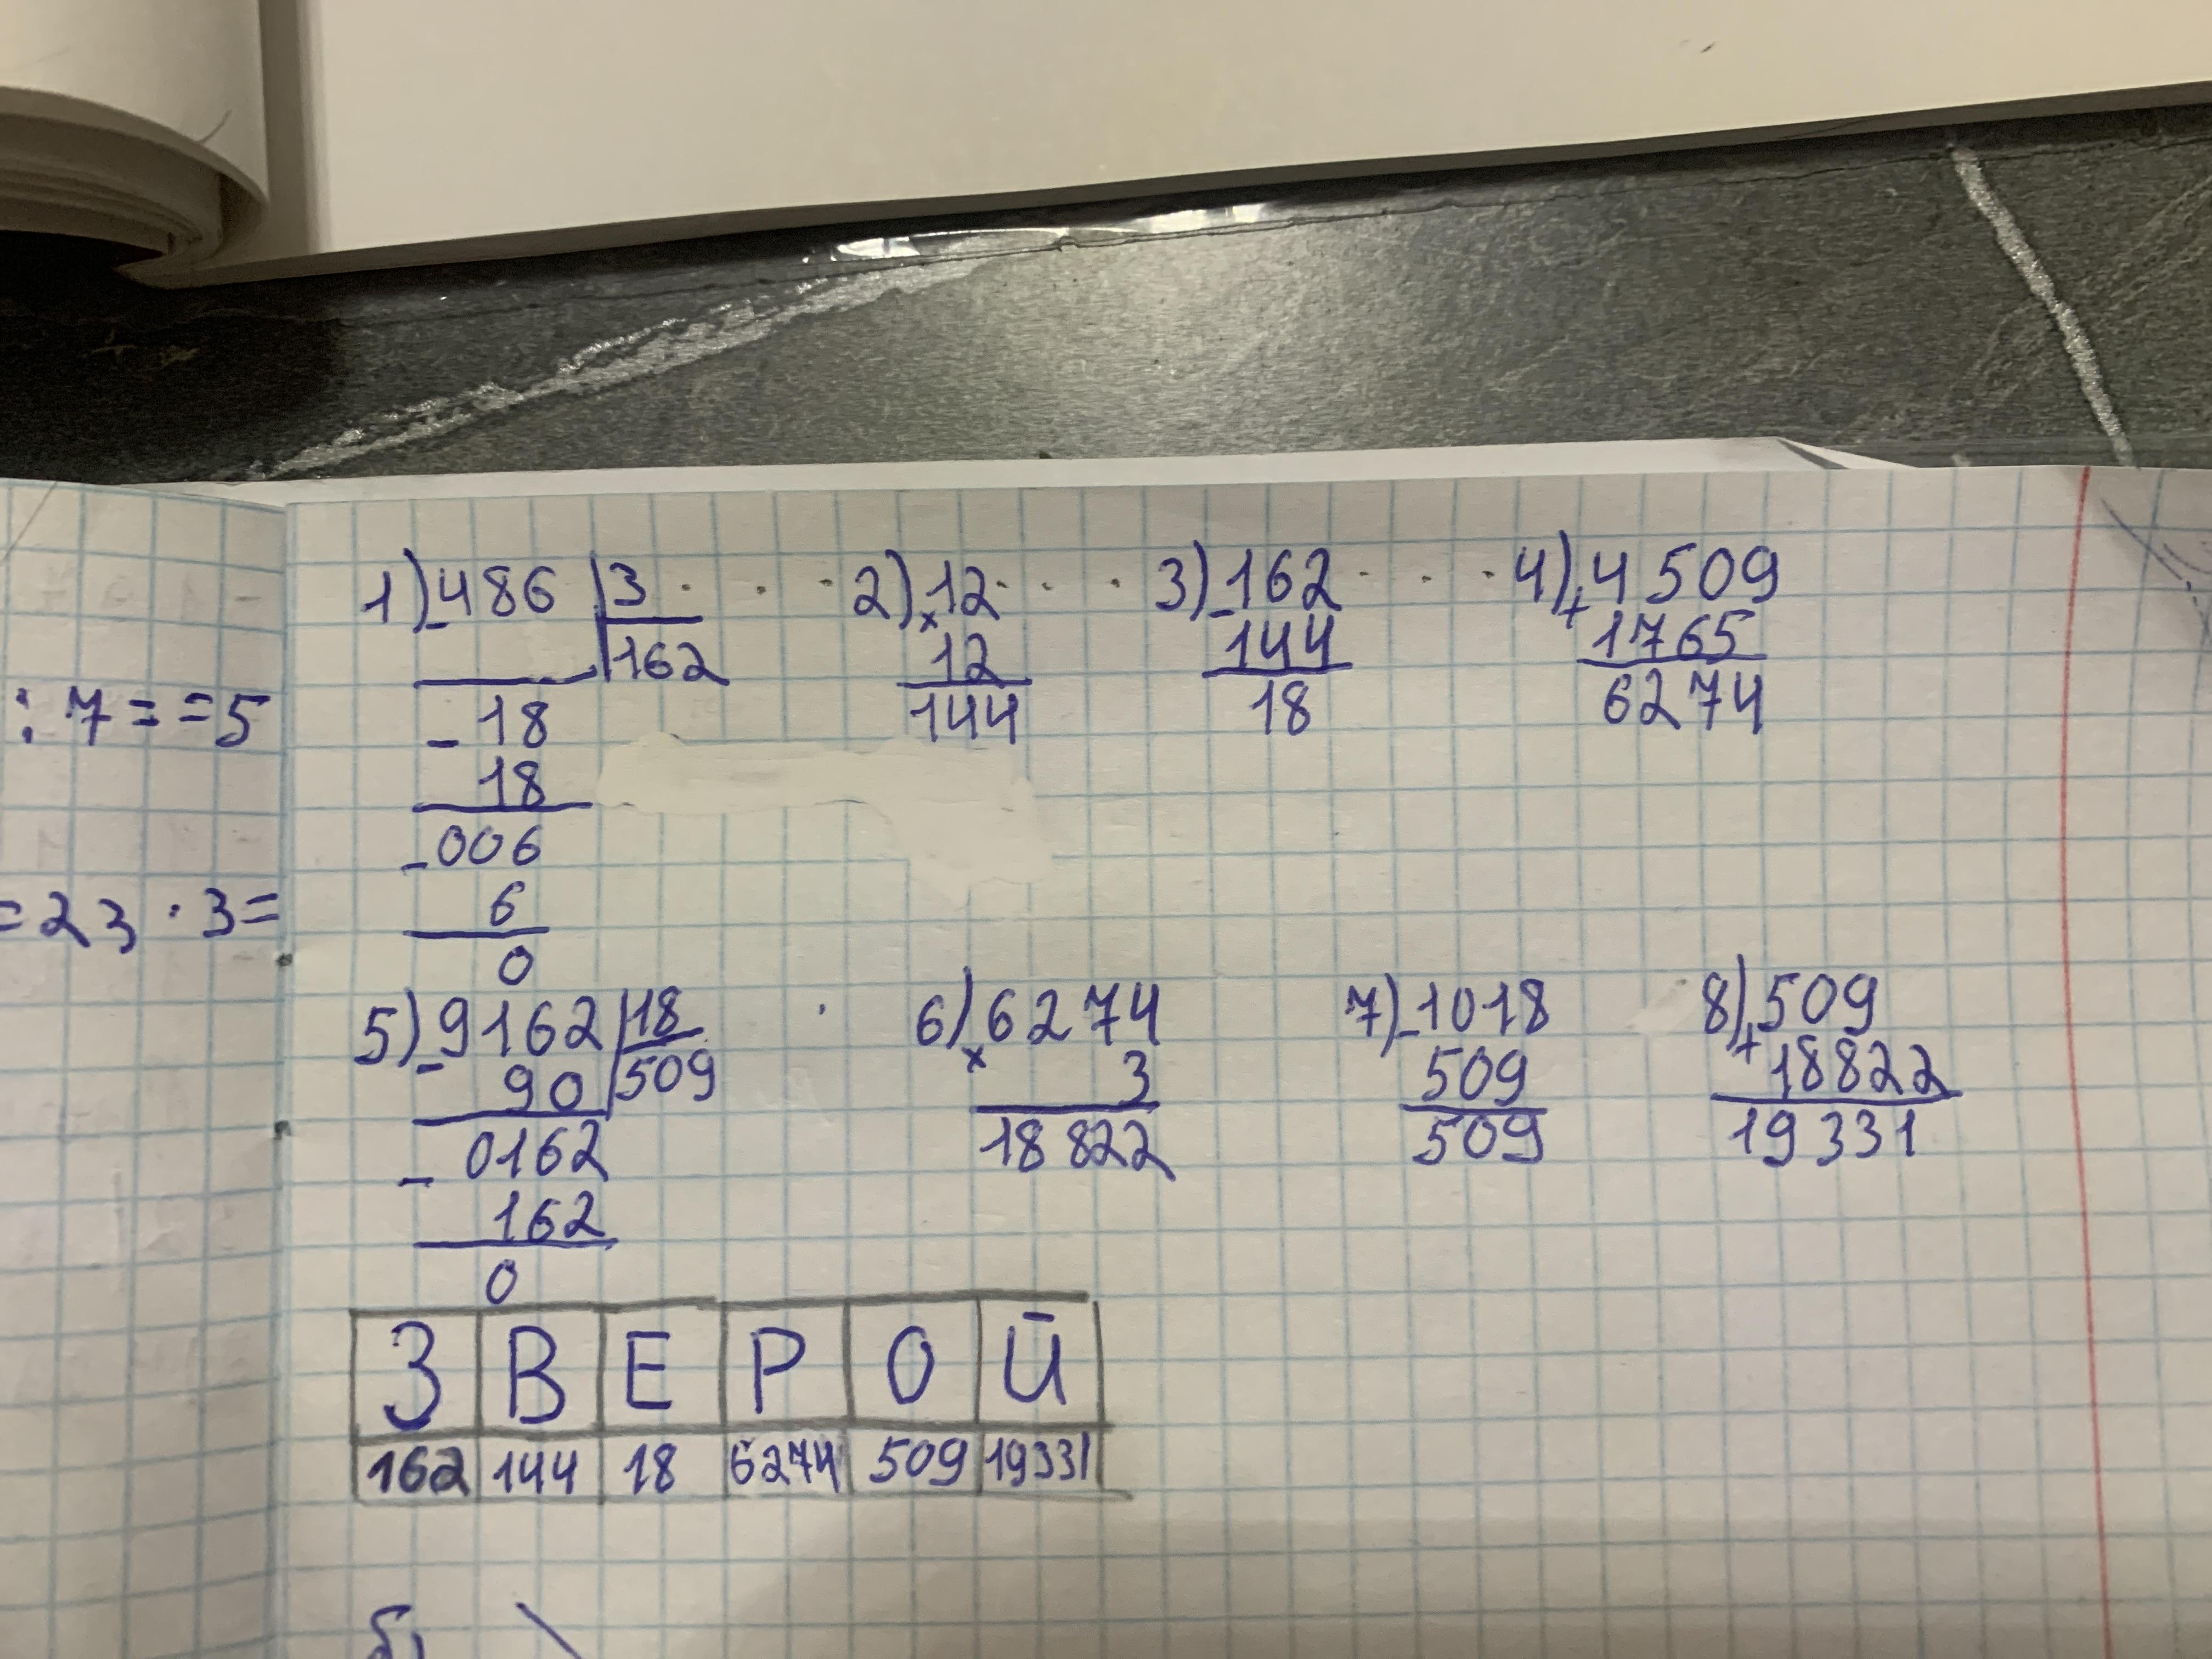 : 7 = = 5
= 23 · 3 =
1) - 486 | 3
162
- 18
18
- 006
6
0
2) × 12
12
144
3) - 162
144
18
4) + 4 509
1765
6274
5) - 9162 | 18
90 | 509
- 0162
162
0
6) × 6274
3
18822
7) - 1018
509
509
8) + 509
18822
19331
З В Е Р О Й
162 144 18 6274 509 19331